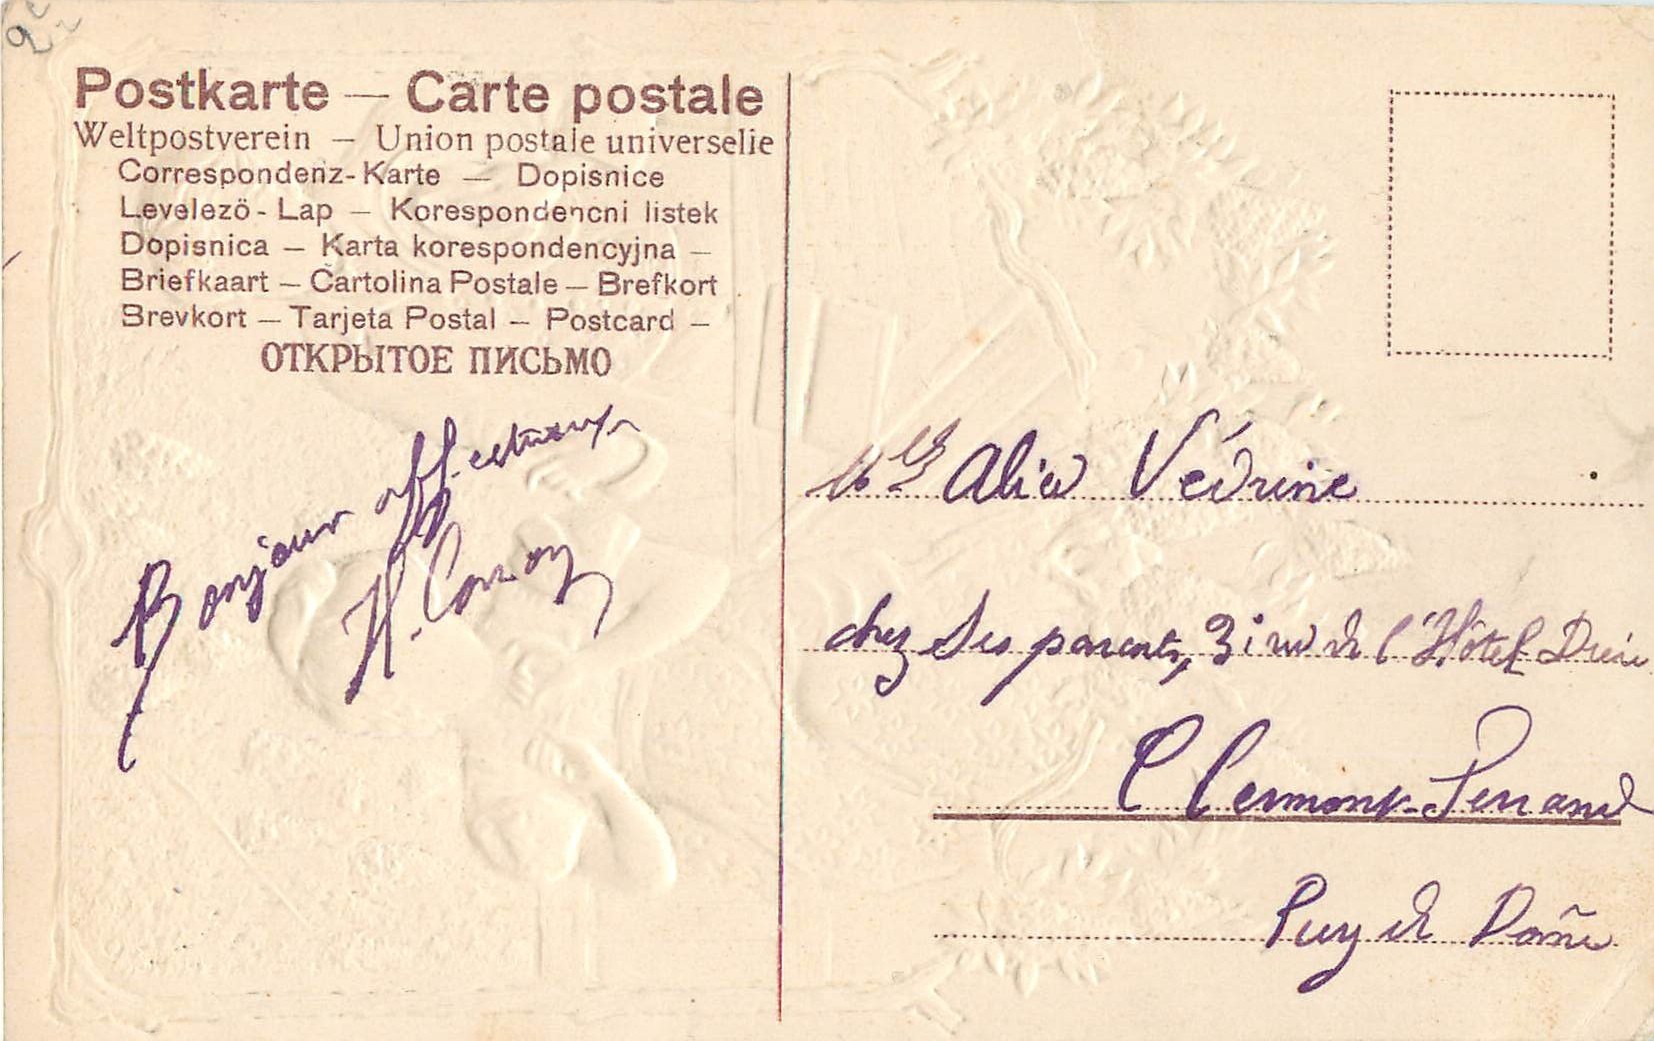 Postkarte — Carte postale
Weltpostverein — Union postale universelle
Correspondenz-Karte — Dopisnice
Levelező-Lap — Korespondencni listek
Dopisnica — Karta korespondencyjna —
Briefkaart — Cartolina Postale — Brefkort
Brevkort — Tarjeta Postal — Postcard —
ОТКРЫТОЕ ПИСЬМО
Bonjour affectueux
H.
Mlle Alice Védrine
chez ses parents, 3 rue de l'Hôtel Dieu
Clermont-Ferrand
Puy de Dôme